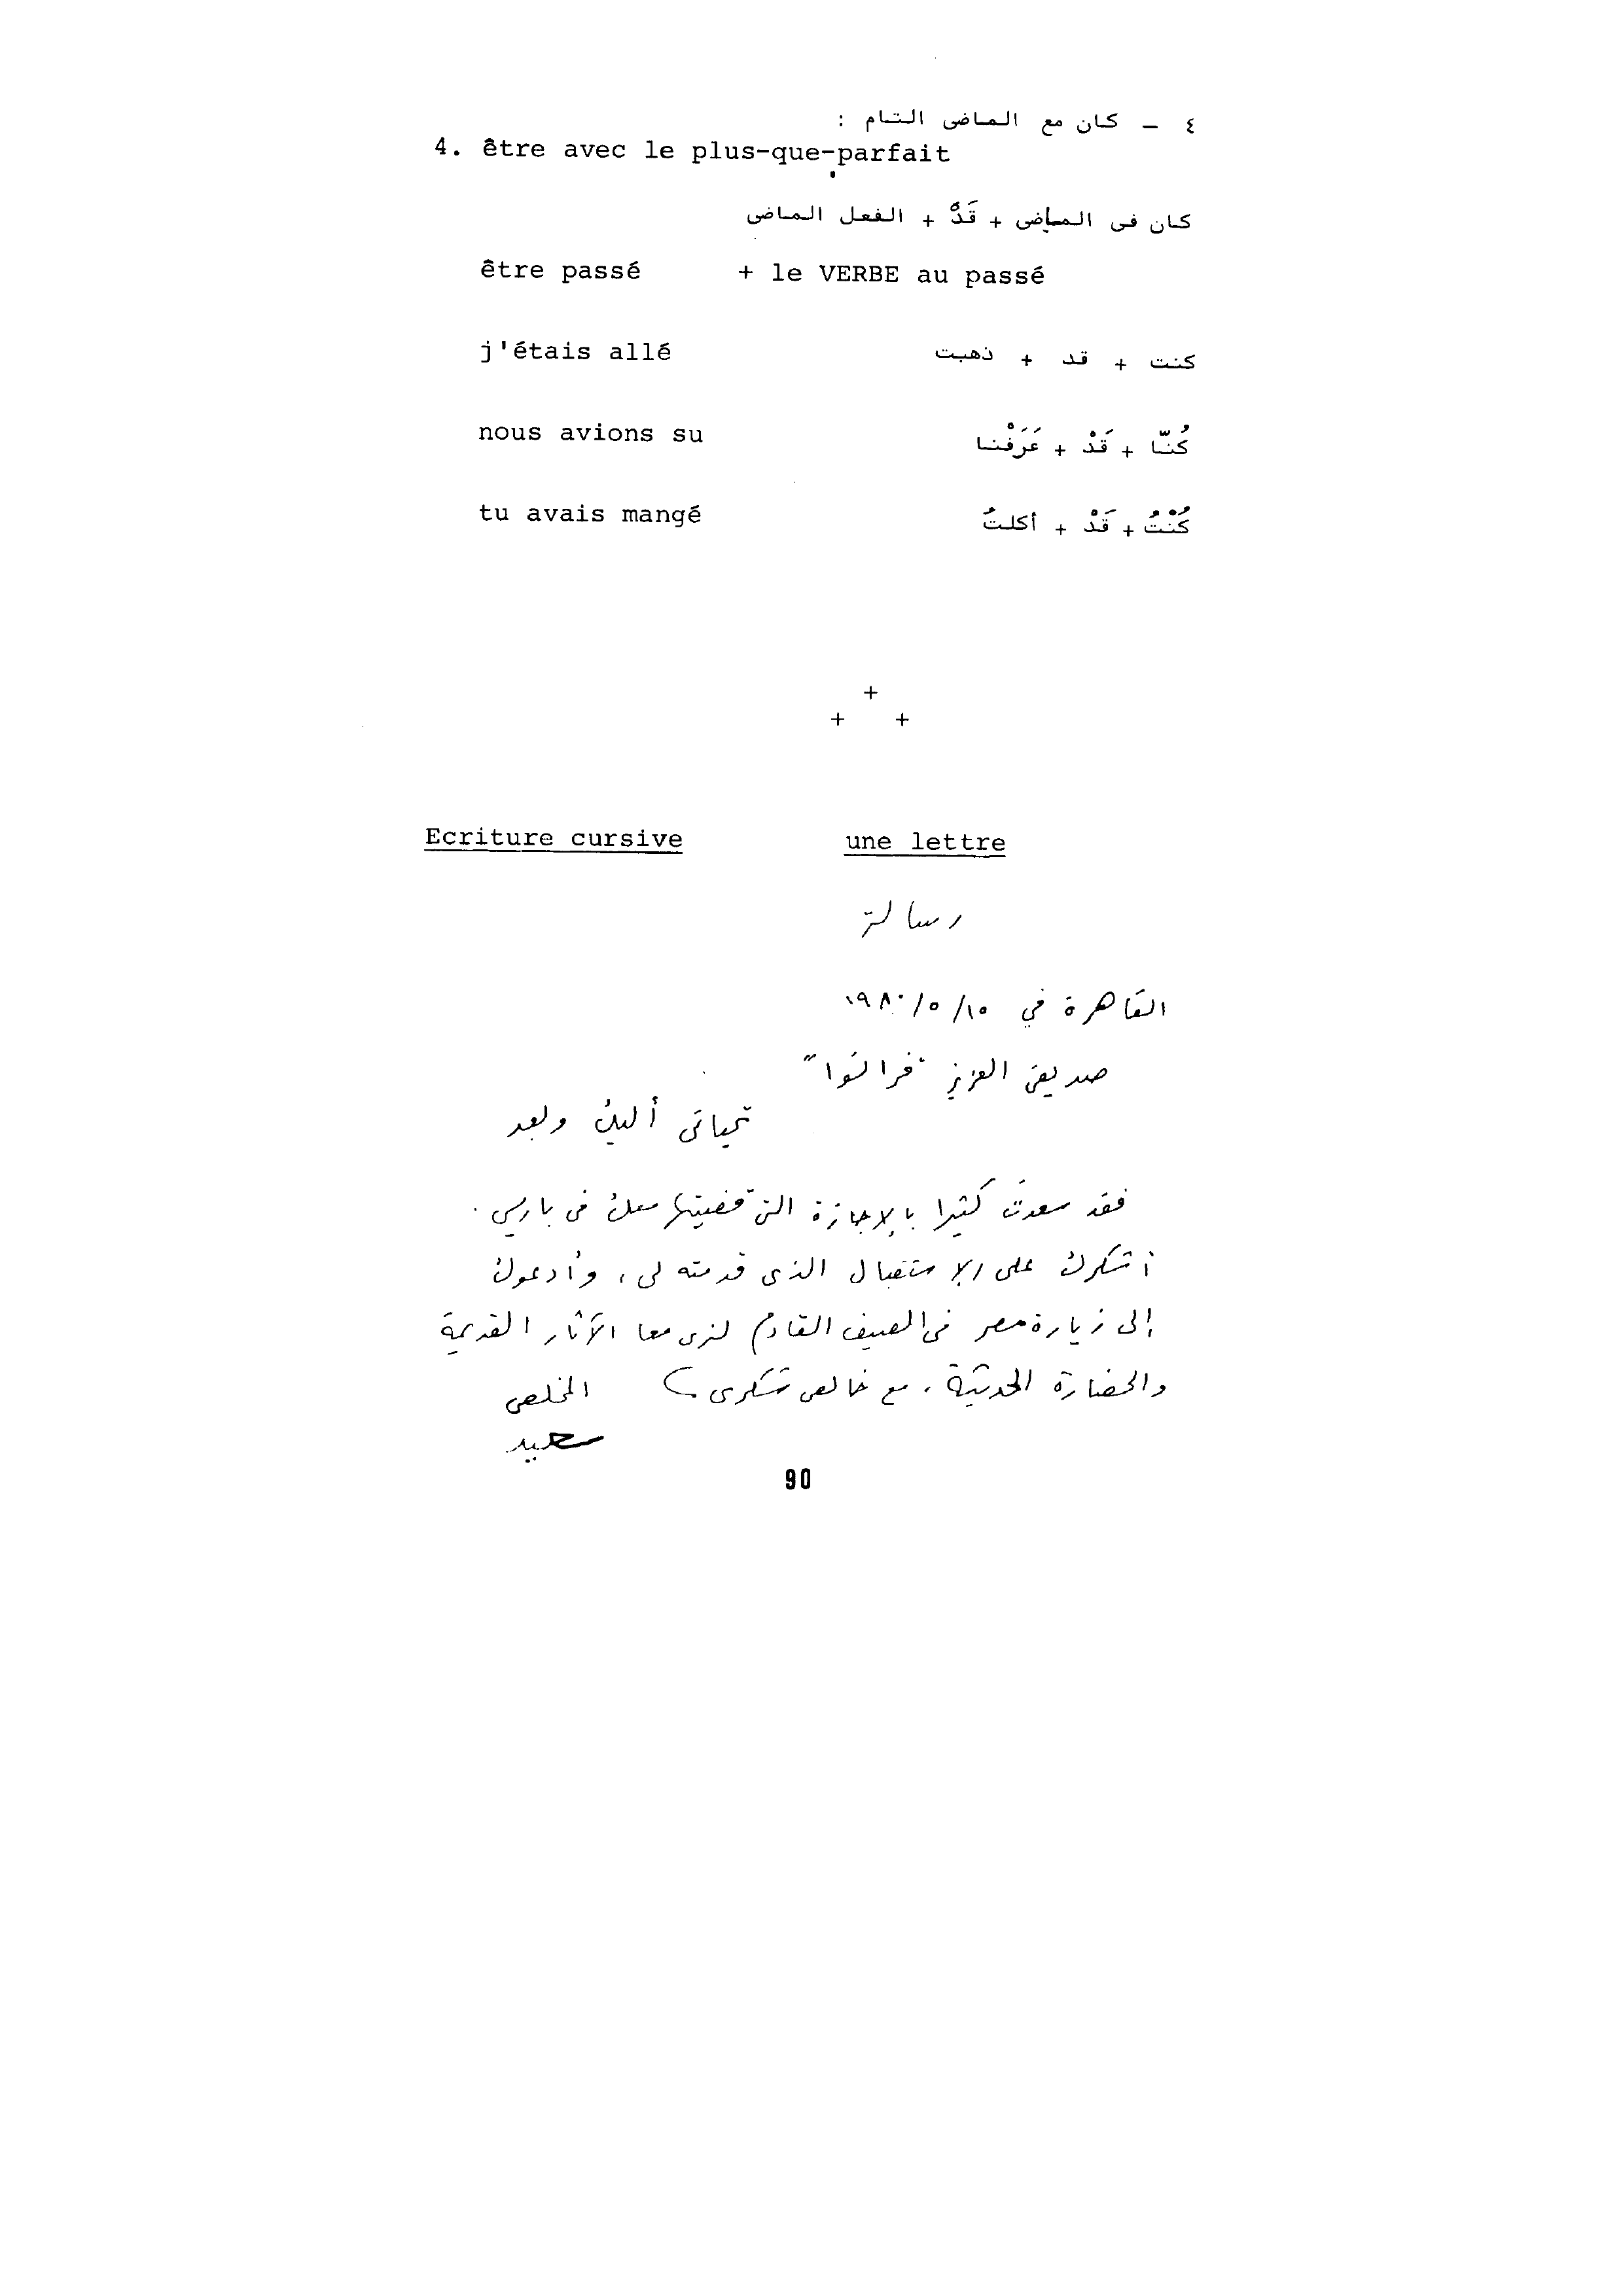 ٤ — كان مع الماضى التام :
4. être avec le plus-que-parfait
كان فى الماضى + قَدْ + الفعل الماضى
être passé + le VERBE au passé
j'étais allé كنت + قد + ذهبت
nous avions su كُنّا + قَدْ + عَرَفْنا
tu avais mangé كُنْتُ + قَدْ + أكلتُ
+
+ +
Ecriture cursive une lettre
رسالة
القاهرة في ١٥/ ٥/ ١٩٨٠
صديقى العزيز "فرانسوا"
تحياتى أليك وبعد
فقد سعدت كثيرا بالإجازة التى قضيتها معك فى باريس .
أشكرك على الإستقبال الذى قدمته لى ، وأدعوك
إلى زيارة مصر فى الصيف القادم لنرى معا الآثار القديمة
والحضارة الحديثة . مع خالص شكرى ؟ المخلص
سعيد
90